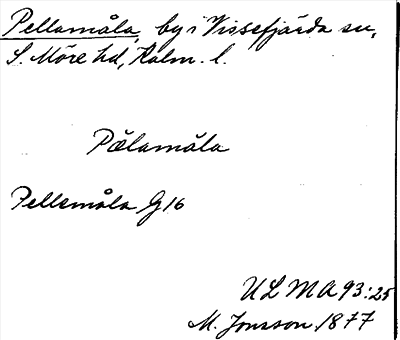 Pellamåla, by i Vissefjärda sn,
S. Möre hd, Kalm. l.
Pälamåla
Pellemåla G16
ULMA 93:25
M. Jonsson 1877